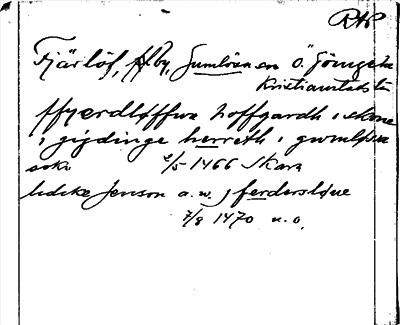 RAP
Fjärlöv, f. by, Gumlösa sn Ö. Göinge hd
Kristianstads län
ffyerdløffwe hoffgardh i skone
i gigdinge herreth i gwmløse
sokn 2/5 1466 Skara
lidike Jenson a. w. j ferdersløue
7/8 1470 u.o.